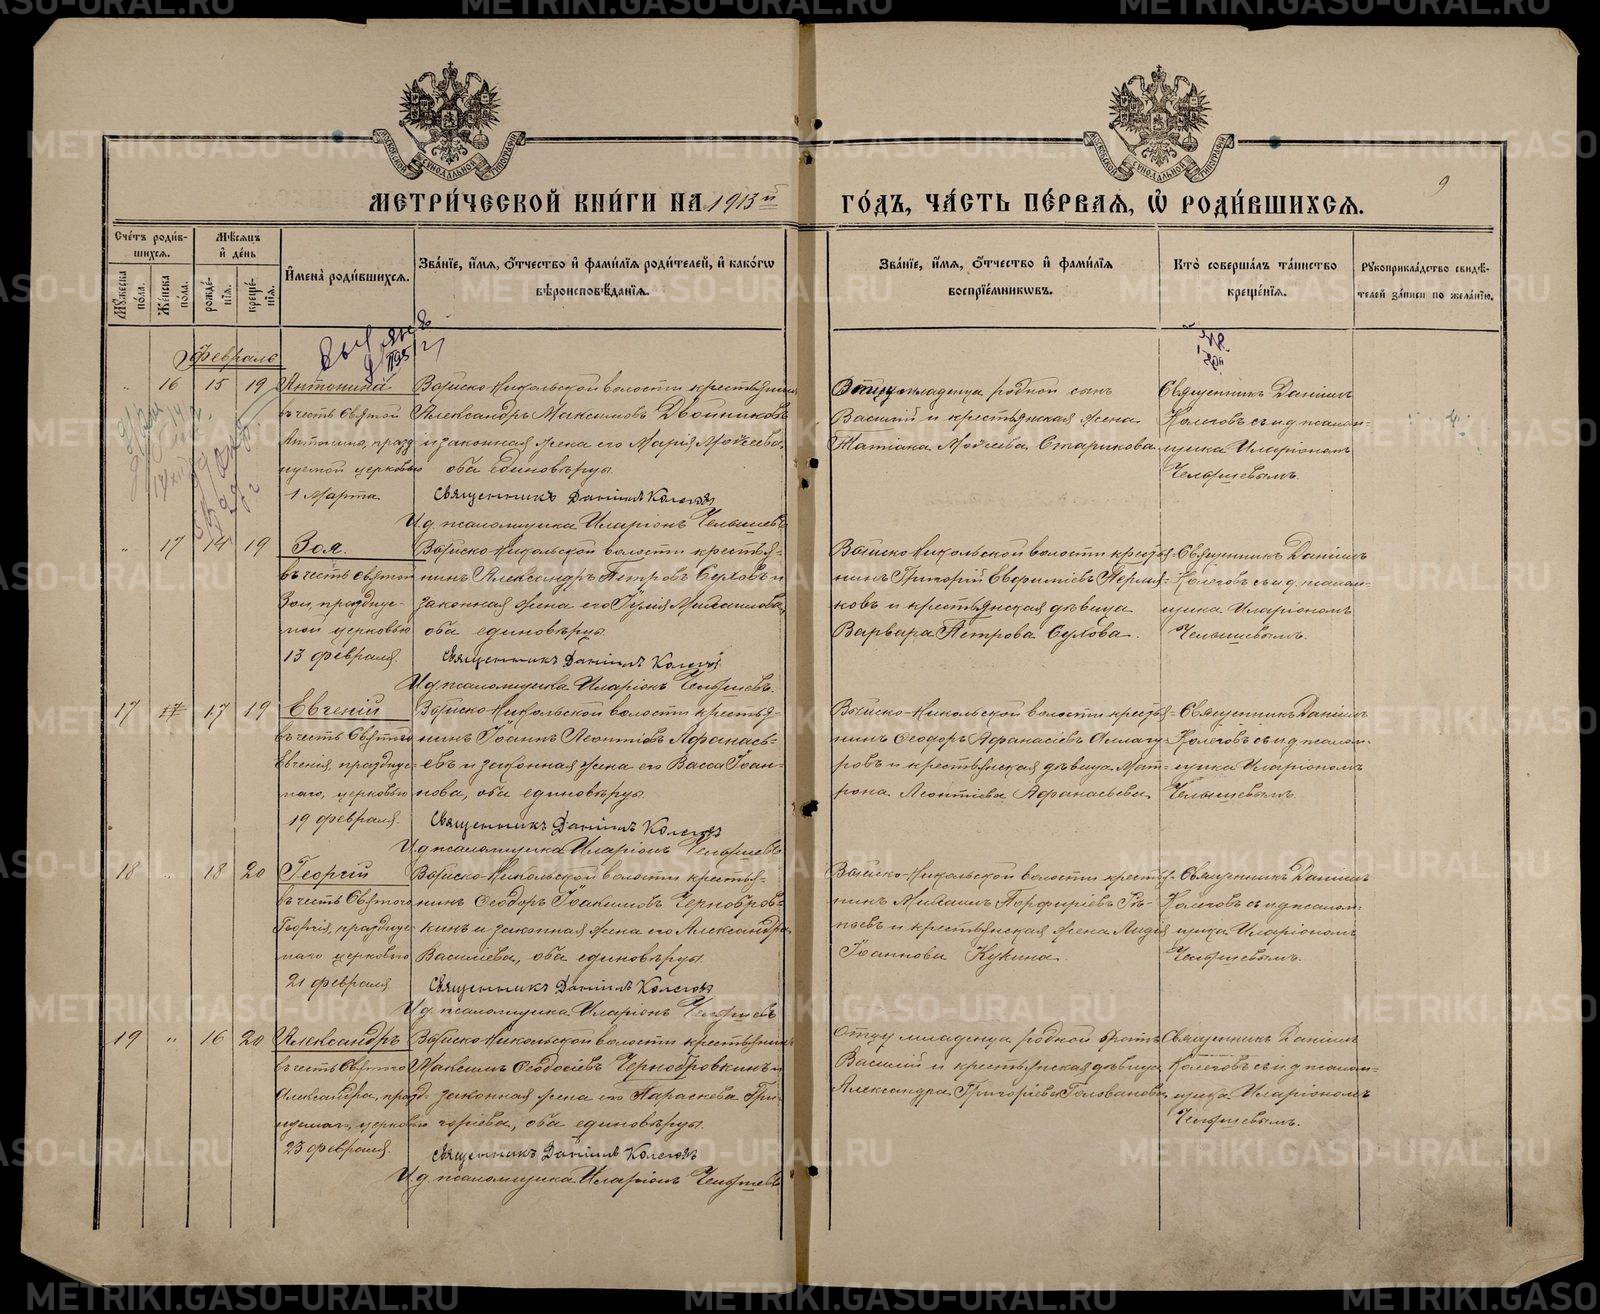 МЕТРИ́ЧЕСКОЙ КНИ́ГИ НА 1913 й ГО́ДЪ, ЧА́СТЬ ПЕ́РВАЯ, Ѽ РОДИ́ВШИХСЯ.
9
Сче́тъ роди́в-
шихся.
Му́жеска по́ла.
Же́нска по́ла.
Мѣ́сяцъ
и҆ де́нь
рожде́-
нїя.
креще́-
нїя.
И҆мена̀ роди́вшихся.
Зва́нїе, и҆́мя, о҆́тчество и҆ фами́лїя роди́телей, и҆ како́гѡ
вѣроисповѣ́данїя.
Зва́нїе, и҆́мя, о҆́тчество и҆ фами́лїя
воспрїе́мникѡвъ.
Кто̀ соверша́лъ та́инство
креще́нїя.
Рꙋкоприкла́дство свидѣ́-
телей за́писи по жела́нїю.
Февраль
" 16 15 19 Антонина
въ честь Святой
Антонины, празд-
нуемой церковью
1 Марта
Войско-Никольской волости крестьянинъ
Александръ Максимовъ Двойниковъ
и законная жена его Марія Моисеева,
оба единовѣрцы
Священникъ Даніилъ Колеговъ
И.д. псаломщика Иларіонъ Челышевъ
Отцу младенца родной сынъ
Василій и крестьянская жена
Татіана Моисеева Старикова
Священникъ Даніилъ
Колеговъ съ и.д. псалом-
щика Иларіономъ
Челышевымъ.
" 17 14 19 Зоя.
въ честь Святой
Зои, празднуе-
мой церковью
13 февраля.
Войско-Никольской волости крестья-
нинъ Александръ Петровъ Суховъ и
законная жена его Іулія Михаилова,
оба единовѣрцы
Священникъ Даніилъ Колеговъ
И.д. псаломщика Иларіонъ Челышевъ.
Войско-Никольской волости крестья-
нинъ Григорій Евфиміевъ Пермя-
ковъ и крестьянская дѣвица
Варвара Петрова Сухова.
Священникъ Даніилъ
Колеговъ съ и.д. псалом-
щика Иларіономъ
Челышевымъ.
17 17 17 19 Евгеній
въ честь Святого
Евгенія, празднуе-
маго, церковью
19 февраля.
Войско-Никольской волости крестья-
нинъ Іоаннъ Леонтіевъ Афанась-
евъ и законная жена его Васса Іоан-
нова, оба единовѣрцы
Священникъ Даніилъ Колеговъ
И.д. псаломщика Иларіонъ Челышевъ
Войско-Никольской волости крестья-
нинъ Ѳеодоръ Афанасіевъ
ровъ и крестьянская дѣвица Мат-
рона Леонтіева Афанасьева
Священникъ Даніилъ
Колеговъ съ и.д. псалом-
щика Иларіономъ
Челышевымъ.
18 " 18 20 Георгій
въ честь Святого
Георгія, празднуе-
маго церковью
21 февраля
Войско-Никольской волости крестья-
нинъ Ѳеодоръ Іоакимовъ Чернобров-
кинъ и законная жена его Александра
Василіева, оба единовѣрцы.
Священникъ Даніилъ Колеговъ
И.д. псаломщика Иларіонъ Челышевъ
Войско-Никольской волости крестья-
нинъ Михаилъ Порфиріевъ
и крестьянская жена Лидія
Іоаннова Кукина.
Священникъ Даніилъ
Колеговъ съ и.д. псалом-
щика Иларіономъ
Челышевымъ.
19 " 16 20 Александръ
въ честь Святого
Александра, празд-
нуемаго, церковью
23 февраля.
Войско-Никольской волости крестьянинъ
Максимъ Ѳеодосіевъ Чернобровкинъ и
законная жена его Параскева Гри-
горіева, оба единовѣрцы.
Священникъ Даніилъ Колеговъ
И.д. псаломщика Иларіонъ Челышевъ
Отцу младенца родной братъ
Василій и крестьянская дѣвица
Александра Григоріева Голованова
Священникъ Даніилъ
Колеговъ съ и.д. псалом-
щика Иларіономъ
Челышевымъ.
METRIKI.GASO-URAL.RU